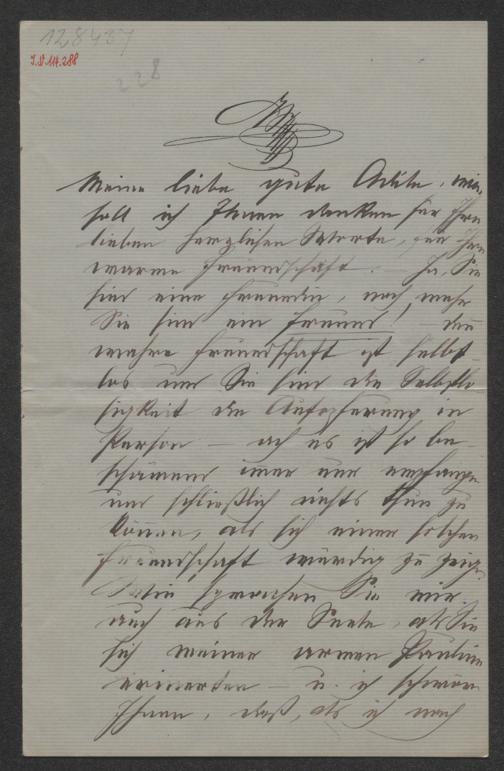 128437
I.N. 114.288
228
Meine liebe gute Adele, wie
soll ich Ihnen danken für Ihre
lieben herzlichen Worte, für Ihre
warme Freundschaft. Ja, Sie
sind eine Freundin, noch mehr
Sie sind ein Freund! die
wahre Freundschaft ist selbst-
los und Sie sind die Selbstlo-
sigkeit die Aufopferung in
Person – ach es ist so be-
schämend imer nur empfange
und schließlich nichts thun zu
können, als sich einer solchen
Freundschaft würdig zu zeigen.
Wie sprachen Sie mir
auch aus der Seele, als Sie
sich meiner armen Pauline
erinerten – u. ich schwöre
Ihnen, daß, als ich noch